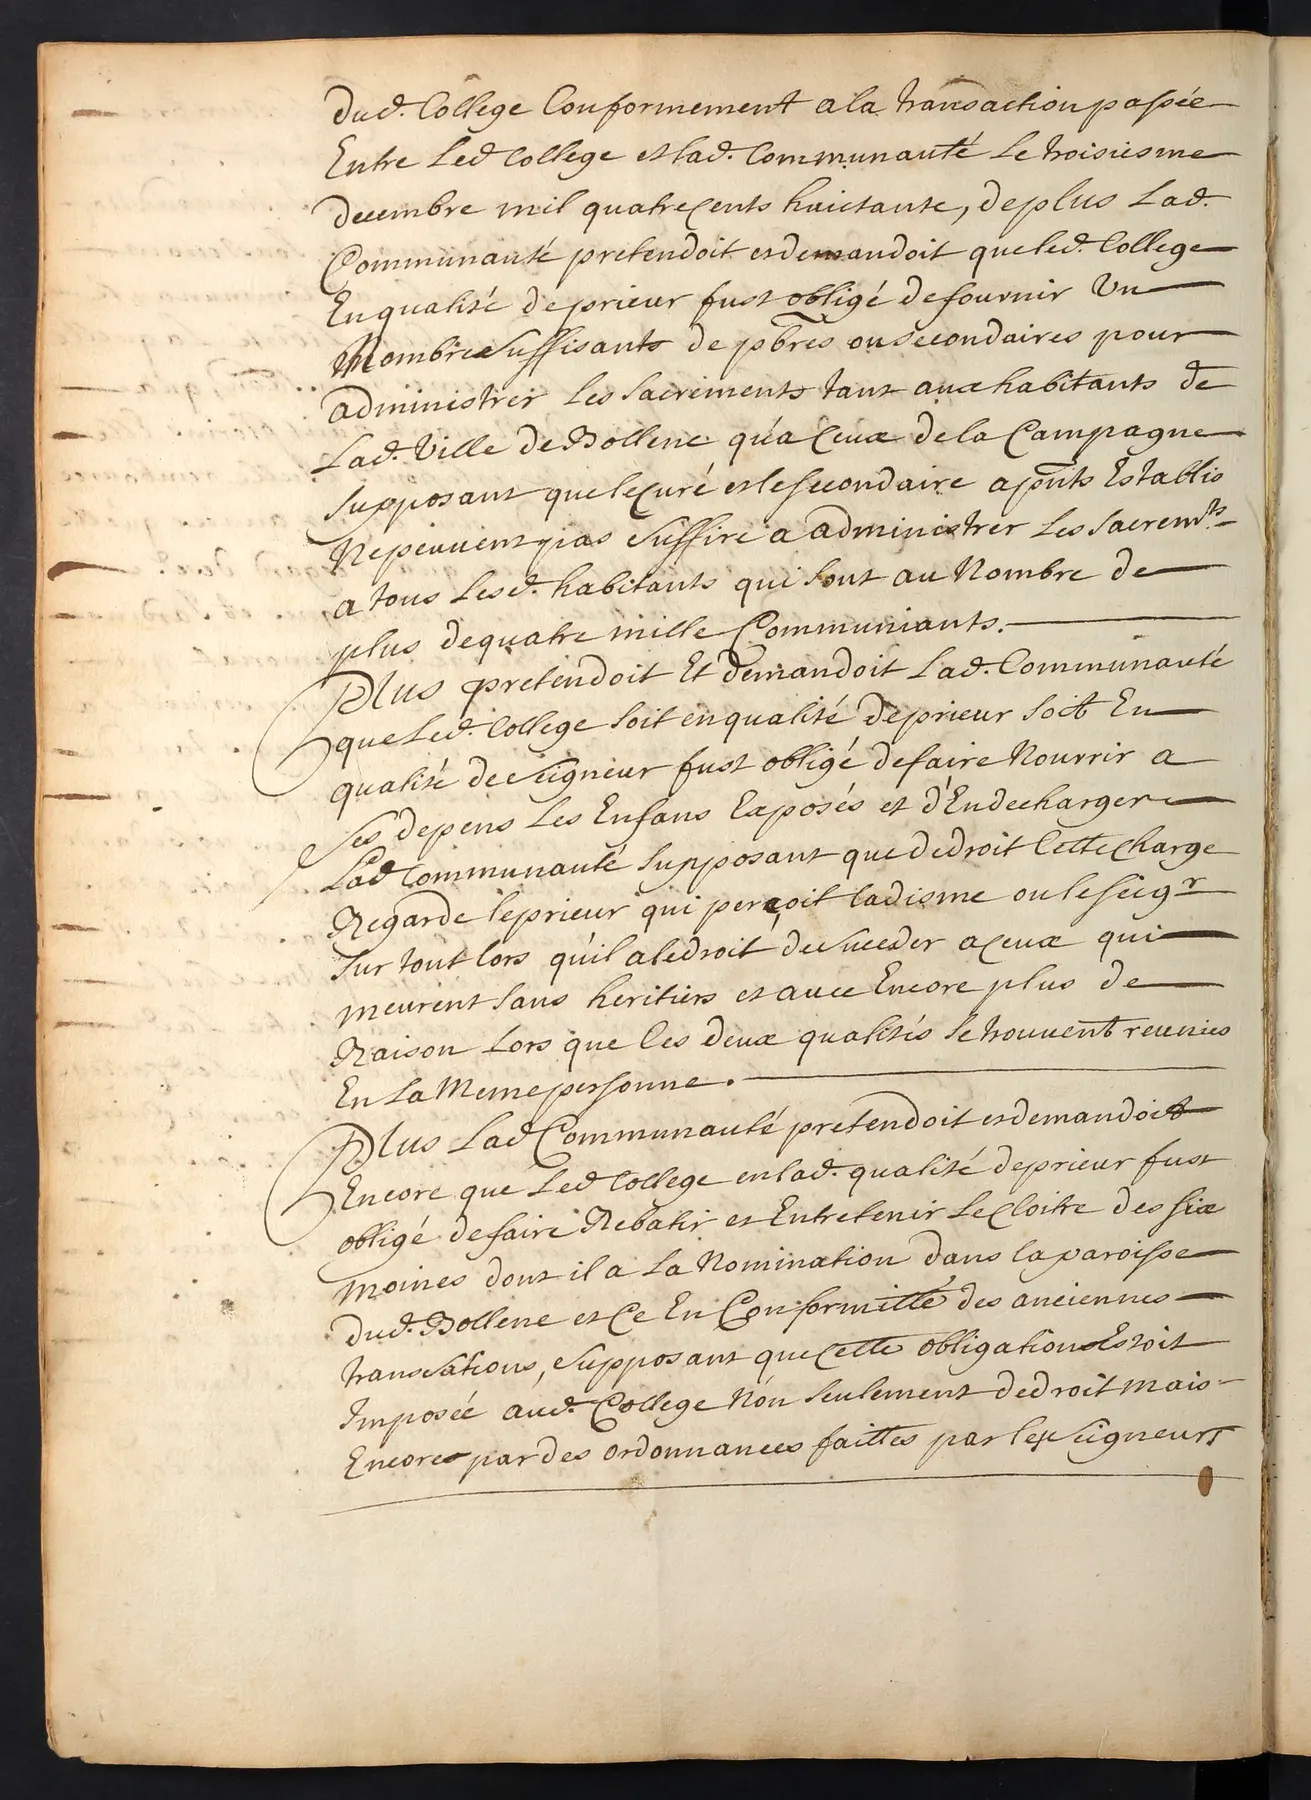 dud. College Conformement a la transaction passée
Entre Led College et lad. Communauté Le troisiesme
decembre mil quatre cents huictante, de plus Lad.
Communauté pretendoit et demandoit que led. College
En qualité de prieur fust obligé de fournir Un
Nombre suffisants de pbres ou secondaires pour
administrer Les sacrements tant aux habitants de
Lad. Ville de Bollene qu'a Ceux de la Campagne
supposant que le Curé et le secondaire apnts Establis
Ne peuvent pas suffire a administrer Les sacremts
a tous Lesd. habitants qui sont au Nombre de
plus de quatre mille Communiants.
Plus pretendoit Et demandoit Lad. Communauté
que Led. College soit en qualité de prieur soit En
qualité de seigneur fust obligé de faire Nourrir a
ses depens Les Enfans Exposés et d'En decharger
Lad Communauté supposant que de droit Cette Charge
Regarde le prieur qui perçoit la disme ou le seigr
sur tout lors qu'il a le droit de succeder a ceux qui
meurent sans heritiers et avec Encore plus de
Raison Lors que les deux qualités se trouvent reunies
En La Meme personne.
Plus Lad Communauté pretendoit et demandoit
Encore que Led College en lad. qualité de prieur fust
obligé de faire Rebatir et Entretenir Le Cloitre des six
moines dont il a La Nomination dans la paroisse
dud. Bollene et Ce En Conformitté des anciennes
transations, supposant que Cette obligation Estoit
Imposée aud. College Non seulement de droit mais
Encore par des ordonnances faittes par les seigneurs